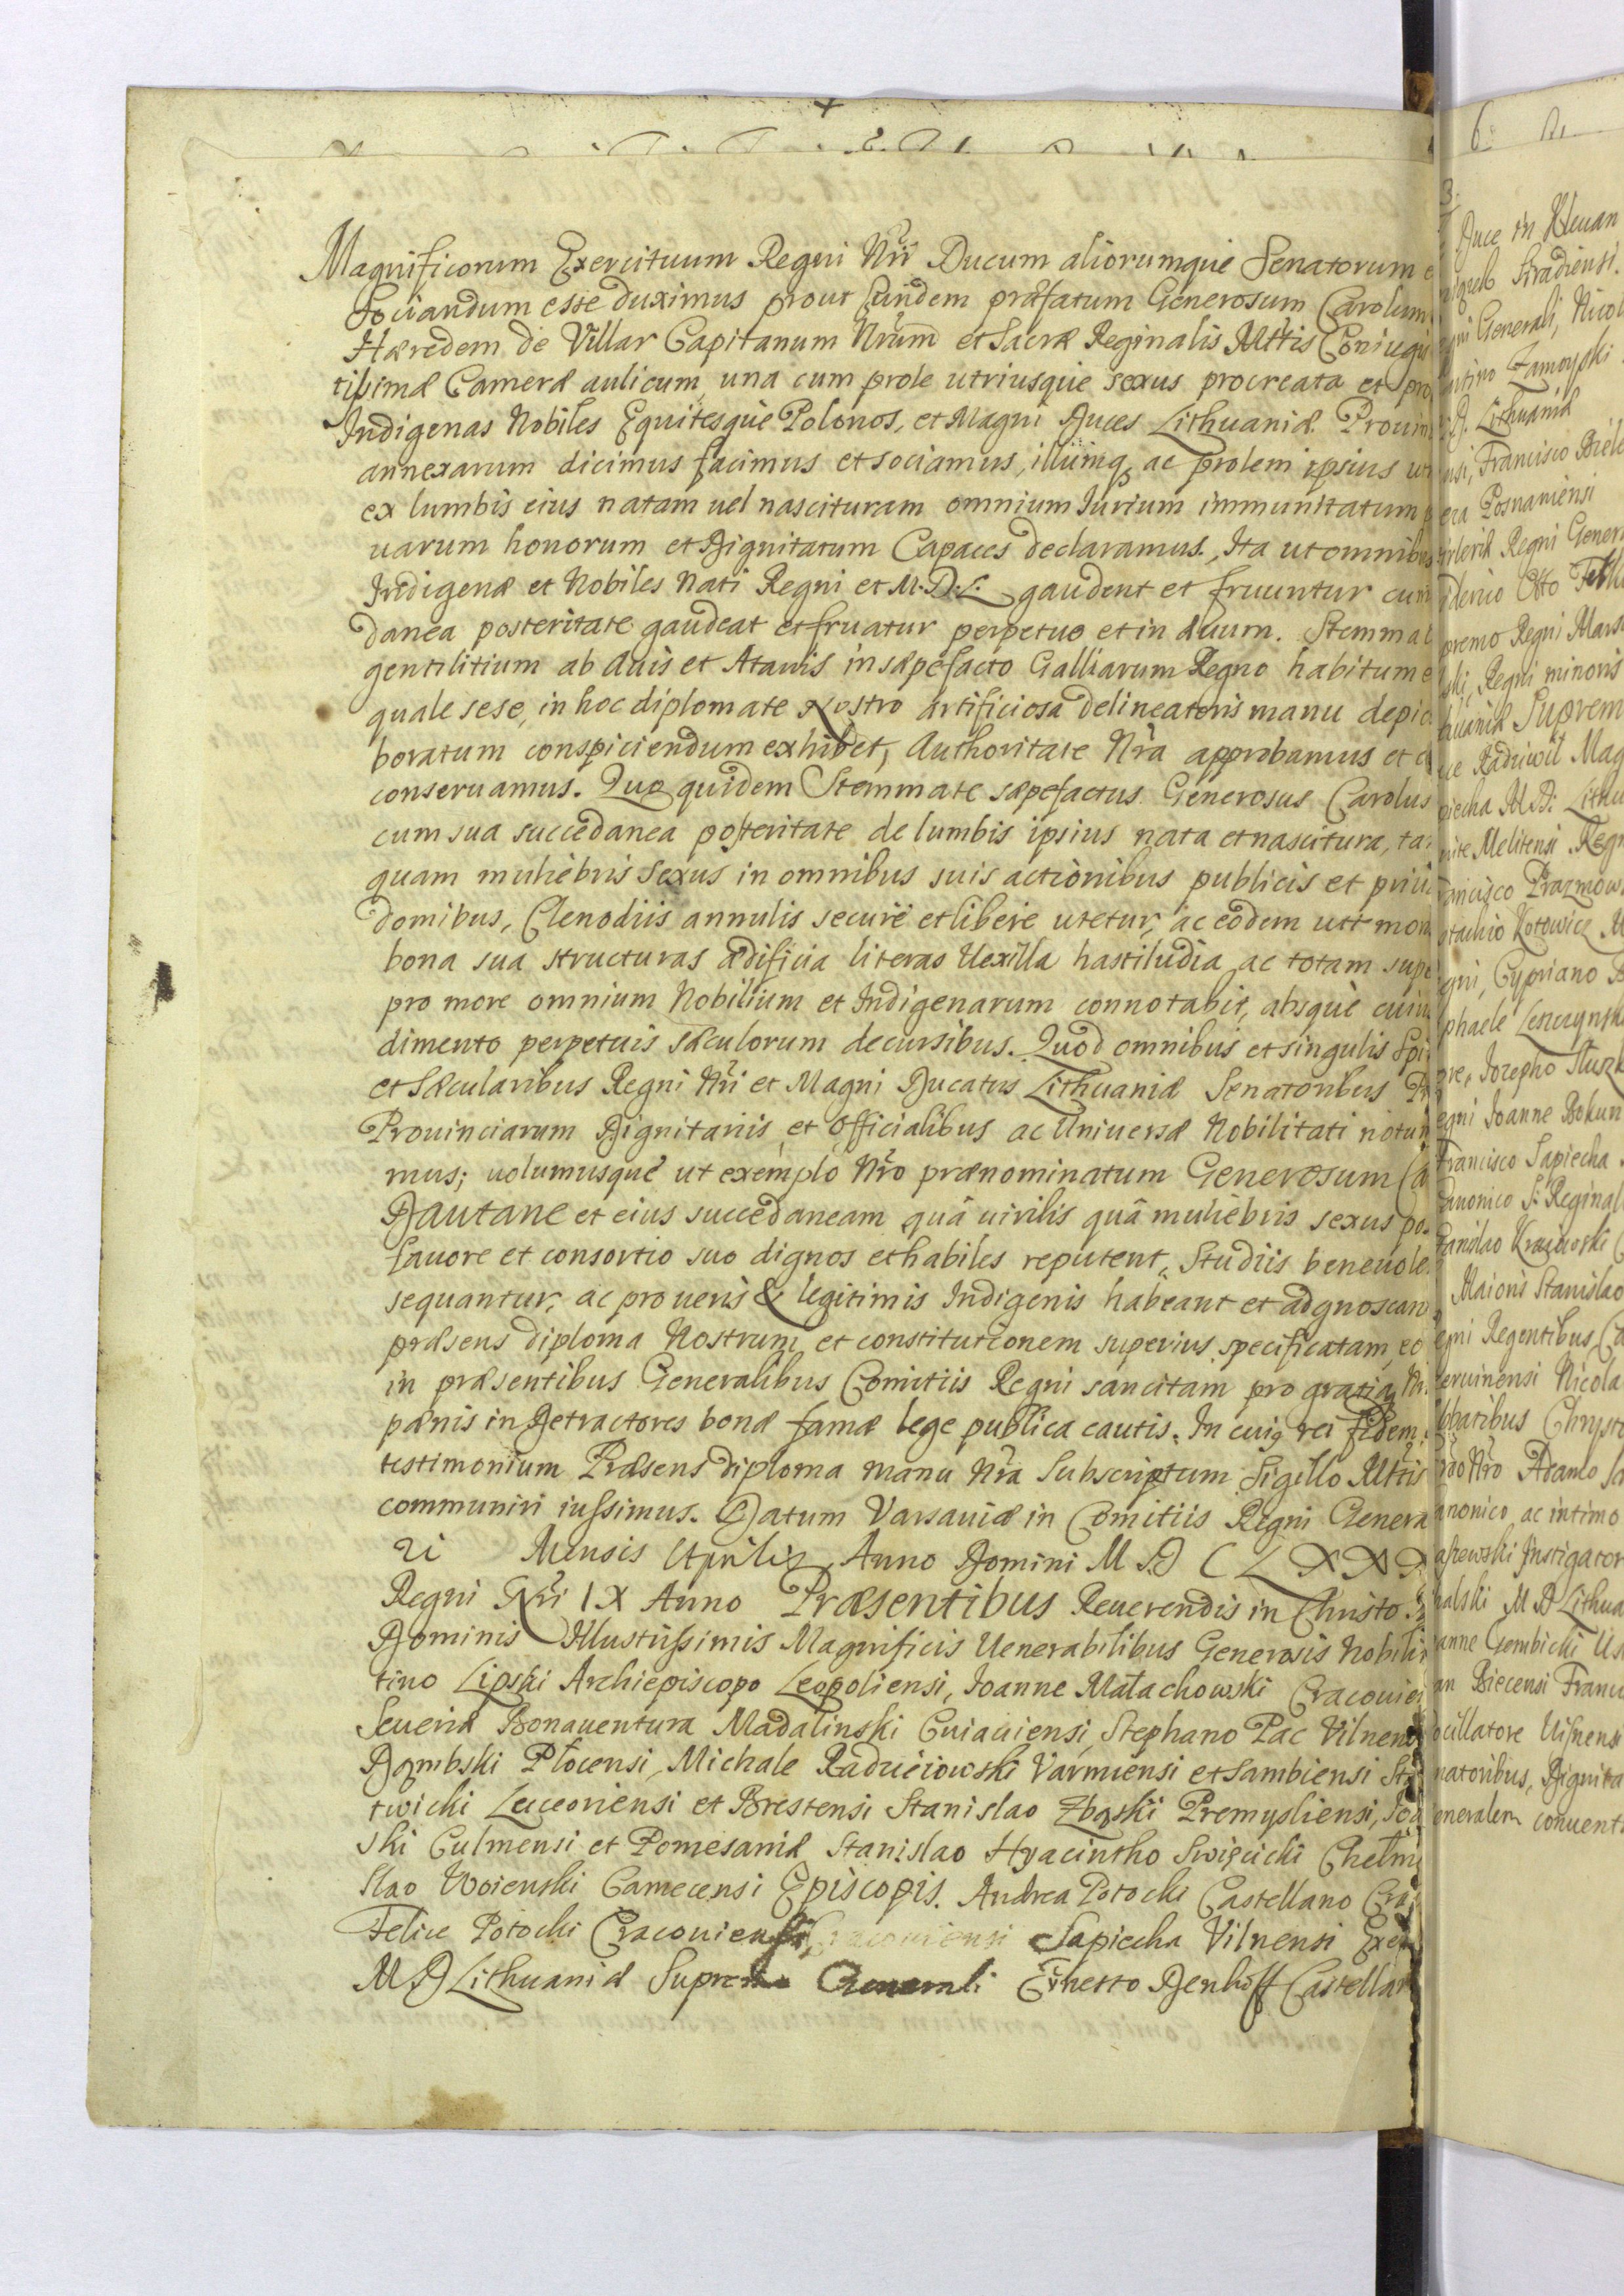 Magnificorum Exercituum Regni Nri Ducum aliorumque Senatorum e
sociandum esse duximus prout Eundem præfatum Generosum Carolum
Hæredem de Villar Capitanum Nrum et Sacræ Reginalis Mttis Coniugis
tissimæ Cameræ aulicum, una cum prole utriusque sexus procreata et pro
Indigenas Nobiles Equitesque Polonos, et Magni Duces Lithuaniæ Prouin
annexarum dicimus facimus et sociamus, illumq, ac prolem ipsius ut
ex lumbis eius natam uel nascituram omnium Iurium immunitatum p
uarum honorum et Dignitatum Capaces declaramus. Ita ut omnibus
Indigenæ et Nobiles Nati Regni et M.D.L. gaudent et fruuntur cum
danea posteritate gaudeat et fruatur perpetuo et in æuum. Stemma
gentilitium ab Auis et Atauis in sæpefacto Galliarum Regno habitum e
quale sese, in hoc diplomate Nostro artificiosa delineatoris manu depic
boratum conspiciendum exhibet, Authoritate Nra approbamus et c
conseruamus. Quo quidem Stemmate sæpefactus Generosus Carolus
cum sua succedanea posteritate de lumbis ipsius nata et nascitura, ta
quam muliebris Sexus in omnibus suis actionibus publicis et priua
domibus, Clenodiis annulis secure et libere utetur, ac eodem uti mon
bona sua structuras ædificia literas Uexilla hastiludia ac totam supe
pro more omnium Nobilium et Indigenarum connotabit, absque cuiu
dimento perpetuis sæculorum decursibus. Quod omnibus et singulis Spi
et Sæcularibus Regni Nri et Magni Ducatus Lithuaniæ Senatoribus
Prouinciarum Dignitariis et Officialibus ac Uniuersæ Nobilitati notum
mus; uolumusque ut exemplo Nro prænominatum Generosum Ca
Dautane et eius succedaneam quâ uirilis quâ muliebris sexus po
fauore et consortio suo dignos et habiles reputent, Studiis beneuole
sequantur, ac pro ueris & legitimis Indigenis habeant et adgnoscan
præsens diploma Nostrum et constitutionem superius specificatam eo
in præsentibus Generalibus Comitiis Regni sancitam pro gratia
pænis in Detractores bonæ famæ lege publica cautis. In cuiq rei fidem
testimonium Præsens diploma manu Nra Subscriptum Sigillo Mttis
communiri iussimus. Datum Varsauiæ in Comitiis Regni Genera
Mensis Aprilis Anno Domini M.D C L X X X
Regni Nri IX Anno Præsentibus Reuerendis in Christo
Dominis Illustrissimis Magnificis Uenerabilibus Generosis Nobili
tino Lipski Archiepiscopo Leopoliensi, Ioanne Małachowski Cracouien
Seueriæ Bonauentura Madalinski Cuiauiensi, Stephano Pac Vilnens
Dąmbski Płocensi, Michale Radzieiowski Varmiensi et Sambiensi Sta
twicki Luceoriensi et Brestensi Stanislao Zbąski Premysliensi, Ioa
ski Culmensi et Pomesaniæ Stanislao Hyacintho Swięcicki Chelm
slao Woienski Camecensi Episcopis. Andrea Potocki Castellano Cra
Felice Potocki Cracouiensi, Sapiecha Vilnensi Exer
M D Lithuaniæ Supremo Generali Ernesto Denhoff Castellan
6.
3.
Duce in Kleuan
Siradiensi.
gni Generali, Nicol
artino Zamoyski
D. Lithuaniæ
nsi, Francisco Biele
era Posnaniensi
tilleriæ Regni Gener
Otto
premo Regni Mars
ski, Regni minoris
huaniæ Suprem
ue Radziwił Mag
piecha M.D. Lithu
uite Melitensi Regn
Francisco Prazmow
stachio Kotowicz M
egni, Cypriano
phaele Leszczynski
re, Iozepho Sluszk
egni Ioanne Bokun
Francisco Sapiecha
Canonico S. Reginal
Stanislao Krajewski
Maioris Stanislao
egni Regentibus, Ca
zeruinensi Nicola
bbatibus Chrysto
Nro Adamo
anonico, ac intimo
Instigator
halski M D Lithua
anne Gembicki
an Biecensi Franci
ocillatore Uisnensi
natoribus, Dignita
eneralem conuent